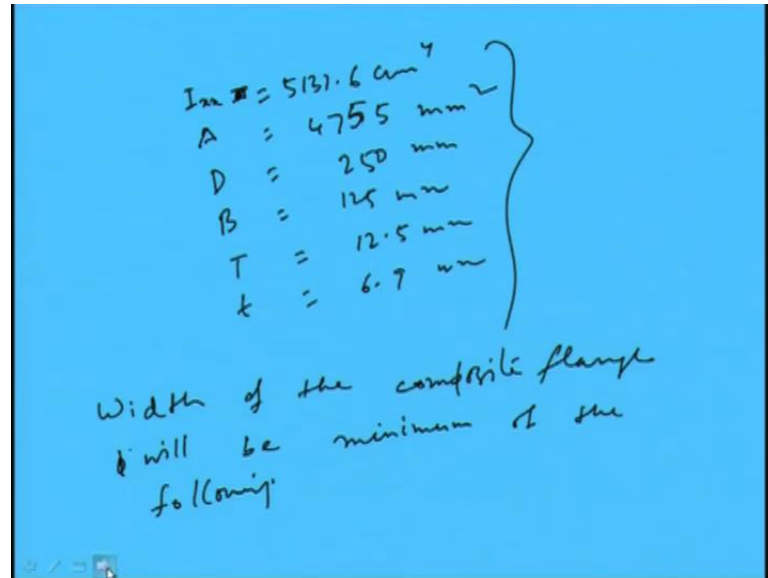 Ixx = 5131.6 cm⁴
A = 4755 mm²
D = 250 mm
B = 125 mm
T = 12.5 mm
t = 6.9 mm
Width of the composite flange
will be minimum of the
following.